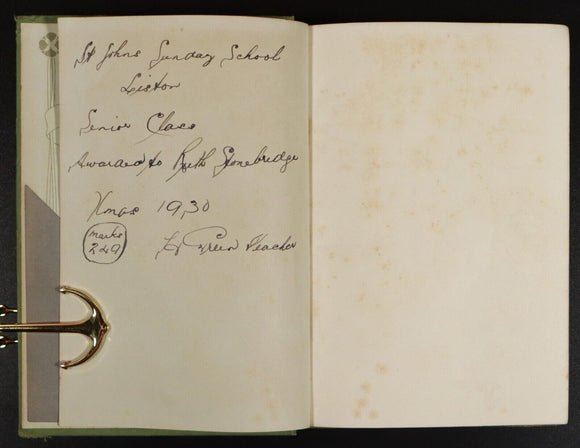 St Johns Sunday School
Liston
Senior Class
Awarded to Ruth Stonebridge
Xmas 1930
marks
249
Green Teacher